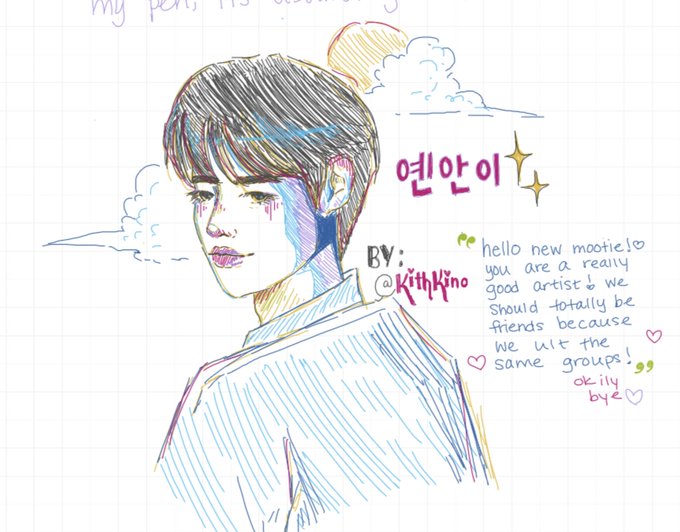 my pen, its
옌안이
BY:
@KithKino
" hello new mootie!♡
you are a really
good artist! we
should totally be
friends because
we ult the
same groups! "
ok ily
bye♡